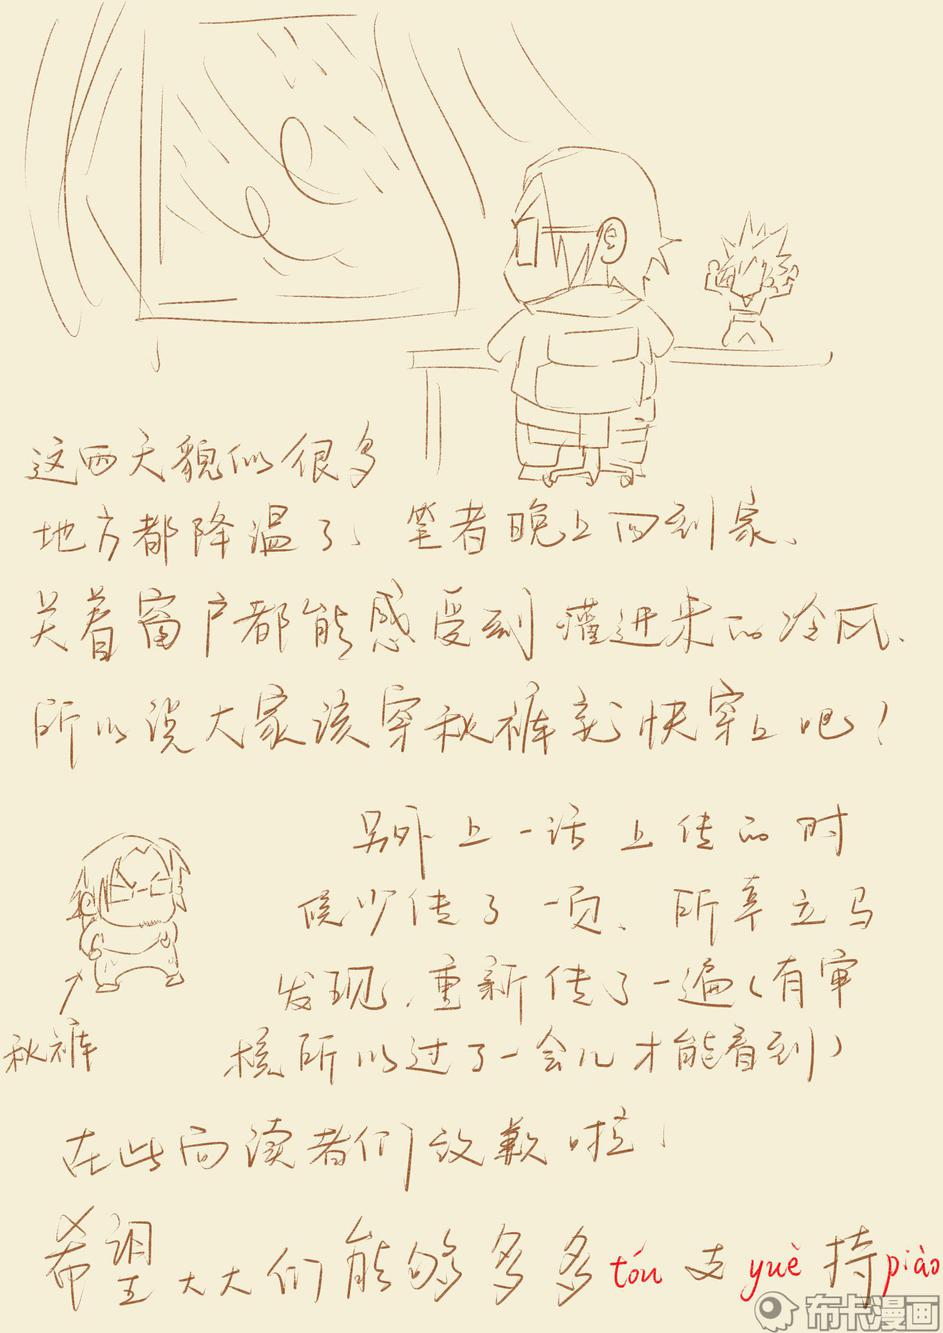 这两天貌似很多
地方都降温了、笔者晚上回到家、
关着窗户都能感受到灌进来的冷风、
所以说大家该穿秋裤就快穿上吧！
另外上一话上传的时
候少传了一页、所幸立马
发现、重新传了一遍（有审
核所以过了一会儿才能看到）
秋裤
在此向读者们致歉啦！
希望大大们能够多多tóu支yuè持piào
布卡漫画